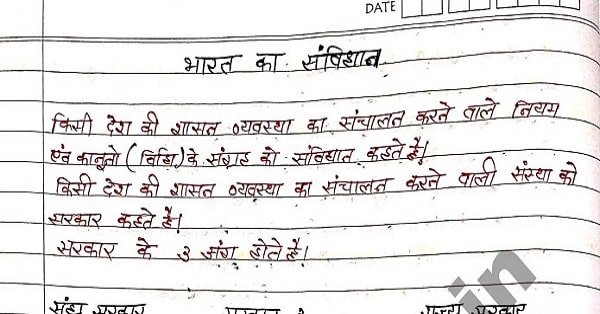 DATE
भारत का संविधान
किसी देश की शासन व्यवस्था का संचालन करने वाले नियम
एवं कानूनो (विधि) के संग्रह को संविधान कहते है।
किसी देश की शासन व्यवस्था का संचालन करने वाली संस्था को
सरकार कहते है।
सरकार के 3 अंग होते है।
संघ सरकार राज्य सरकार
in